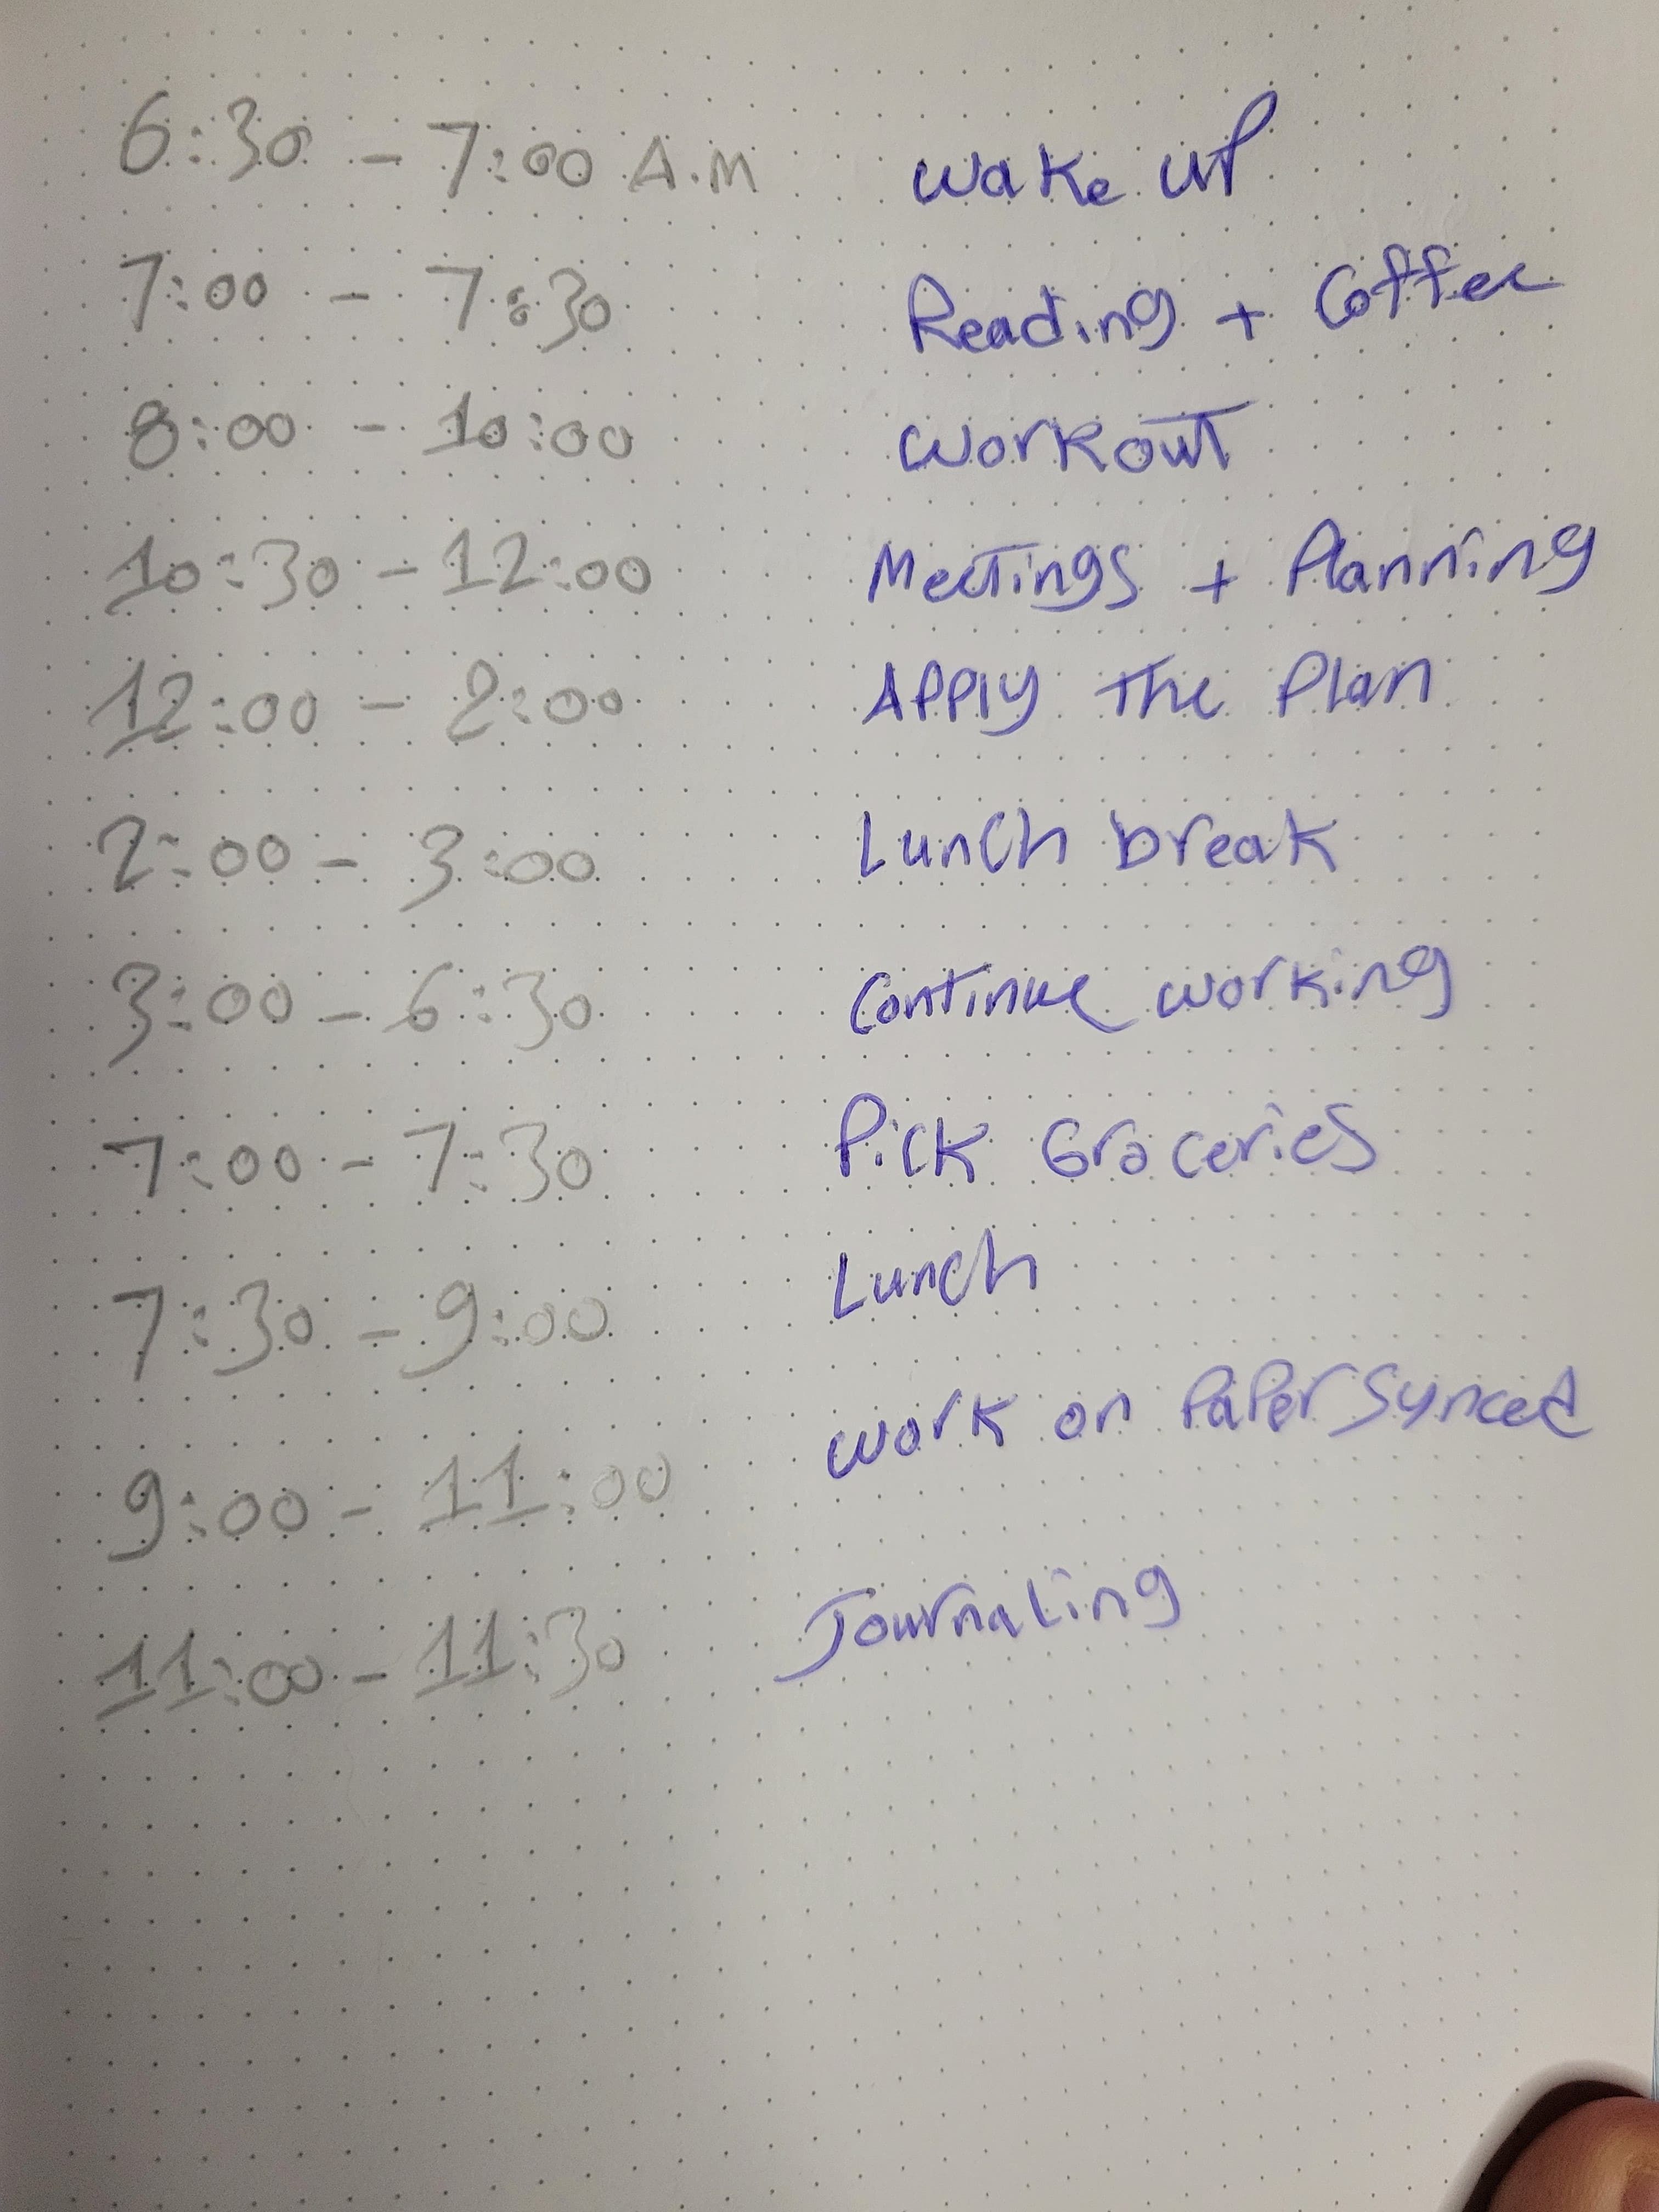 6:30 - 7:00 A.M wake up
7:00 - 7:30 Reading + Coffee
8:00 - 10:00 workout
10:30 - 12:00 Meetings + Planning
12:00 - 2:00 Apply The Plan
2:00 - 3:00 Lunch break
3:00 - 6:30 Continue working
7:00 - 7:30 Pick Groceries
7:30 - 9:00 Lunch
9:00 - 11:00 work on PaperSynced
11:00 - 11:30 Journaling